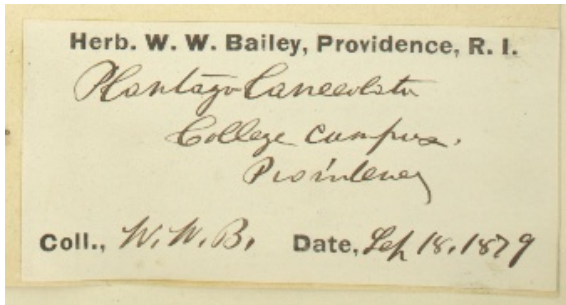 Herb. W. W. Bailey, Providence, R. I.
Plantago lanceolata
College campus.
Providence
Coll., W. W. B. Date, Sep 18, 1879